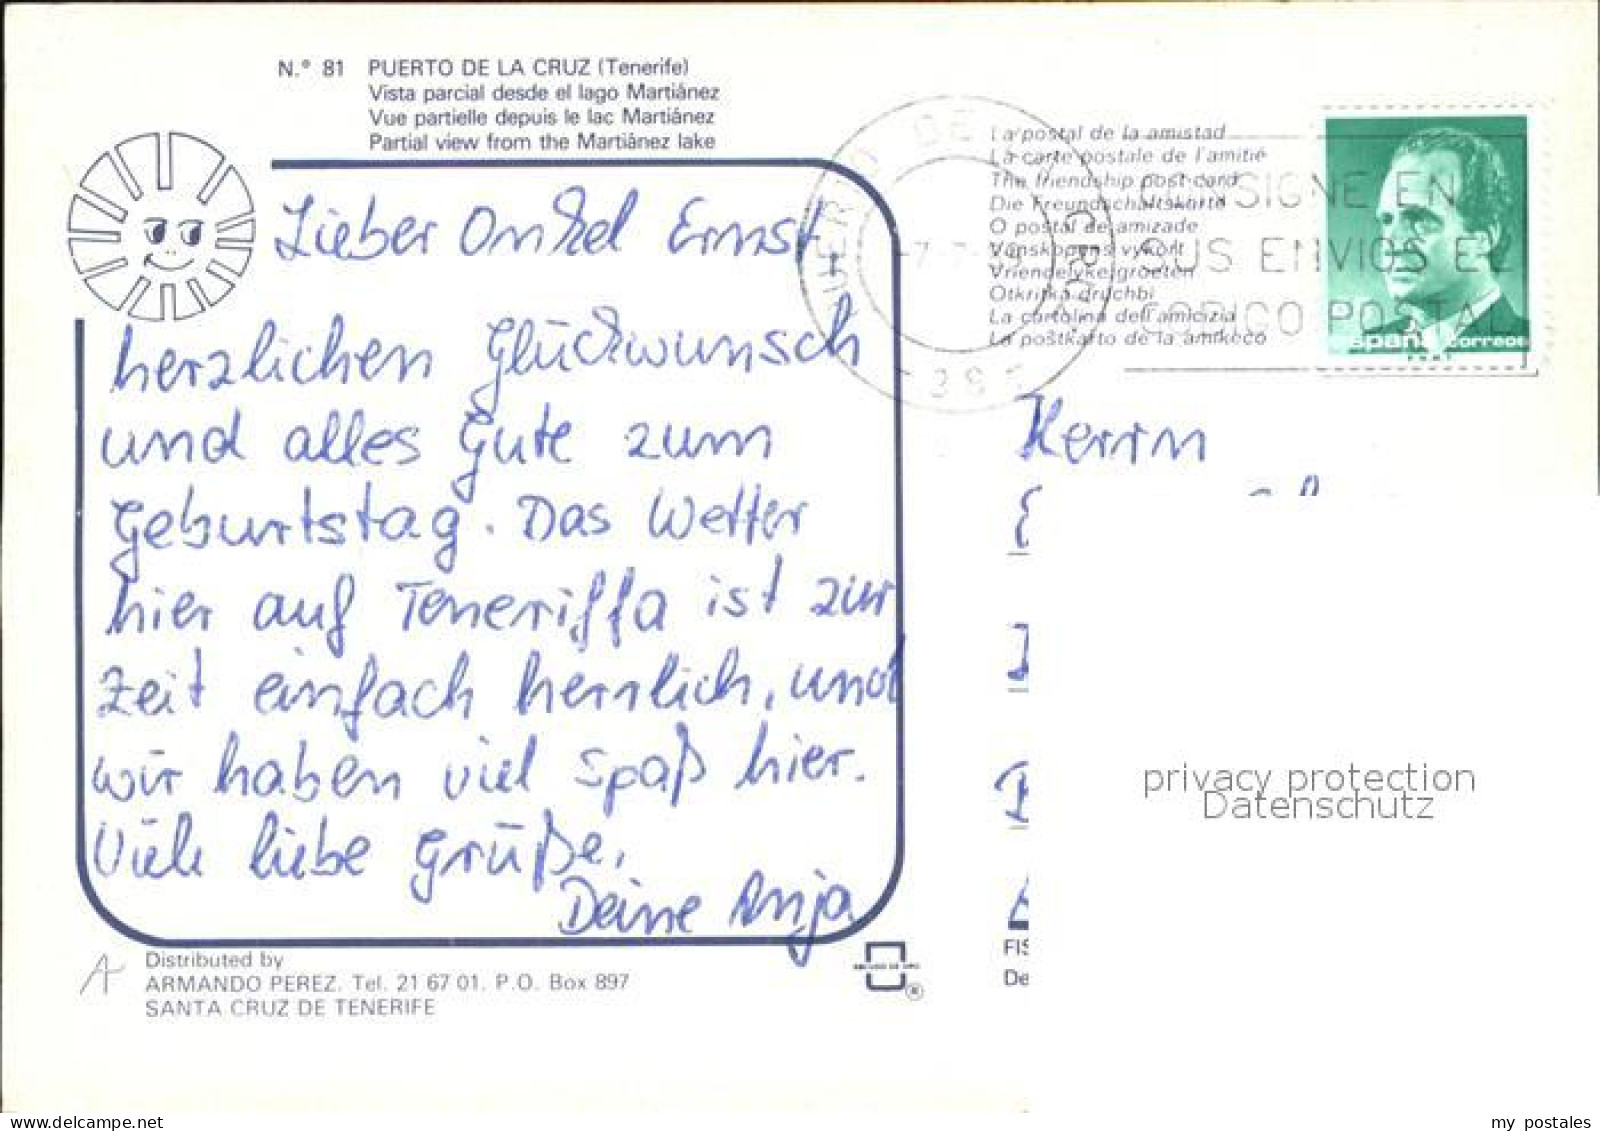 N.° 81 PUERTO DE LA CRUZ (Tenerife)
Vista parcial desde el lago Martiánez
Vue partielle depuis le lac Martiánez
Partial view from the Martiánez lake
Lieber Onkel Ernst
herzlichen Glückwunsch
und alles Gute zum
Geburtstag. Das Wetter
hier auf Teneriffa ist zur
Zeit einfach herrlich, und
wir haben viel Spaß hier.
Viele liebe Grüße,
Deine Anja
Distributed by
ARMANDO PEREZ. Tel. 21 67 01. P.O. Box 897
SANTA CRUZ DE TENERIFE
La postal de la amistad
La carte postale de l'amitié
The friendship post-card
Die Freundschaftskarte
O postal de amizade
Vänskapens vykort
Vriendelyke groeten
Otkritka druchbi
La cartolina dell'amicizia
La poŝtkarto de la amikeco
PUERTO DE LA CRUZ
CONSIGNE EN
SUS ENVIOS EL
CODIGO POSTAL
España correos
Herrn
FIS
De
privacy protection
Datenschutz
my postales